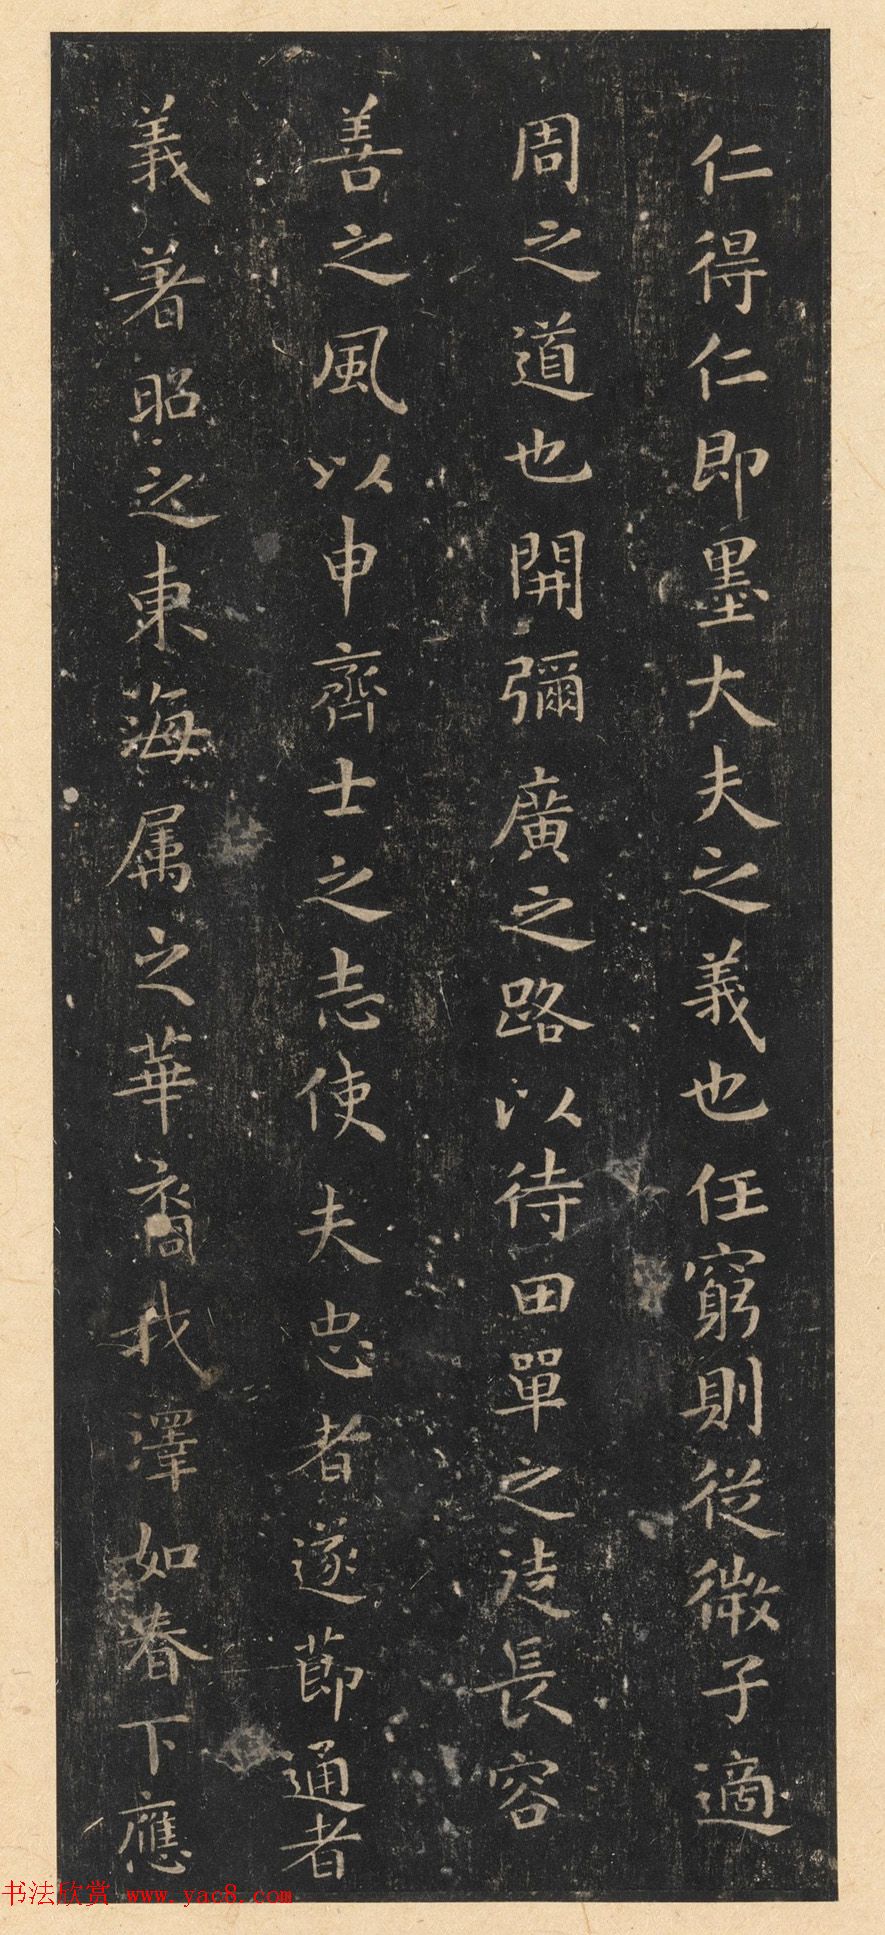 仁得仁即墨大夫之義也任窮則從微子適
周之道也開彌廣之路以待田單之徒長容
善之風以申齊士之志使夫忠者遂節通者
義著昭之東海屬之華裔我澤如春下應
书法欣赏 www.yac8.com